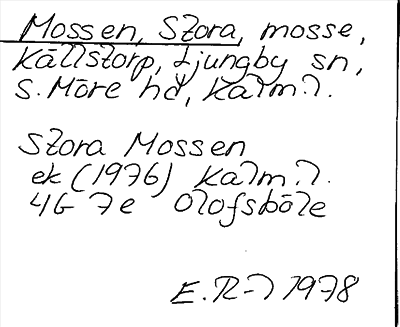 Mossen, Stora, mosse,
Källstorp, Ljungby sn,
S. Möre hd, Kalm. l.
Stora Mossen
ek (1976) Kalm. l.
4G 7e Olofsböle
E. R-l 1978